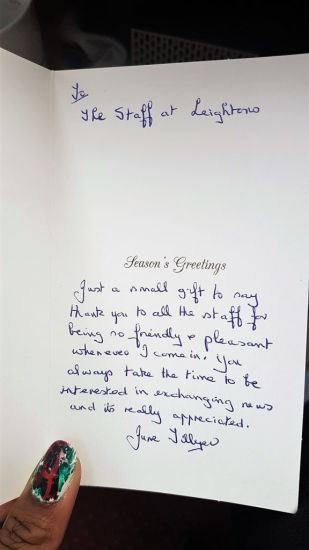 To
The Staff at Leightons
Season's Greetings
Just a small gift to say
thank you to all the staff for
being so friendly & pleasant
whenever I come in. You
always take the time to be
interested in exchanging news
and its really appreciated.
June